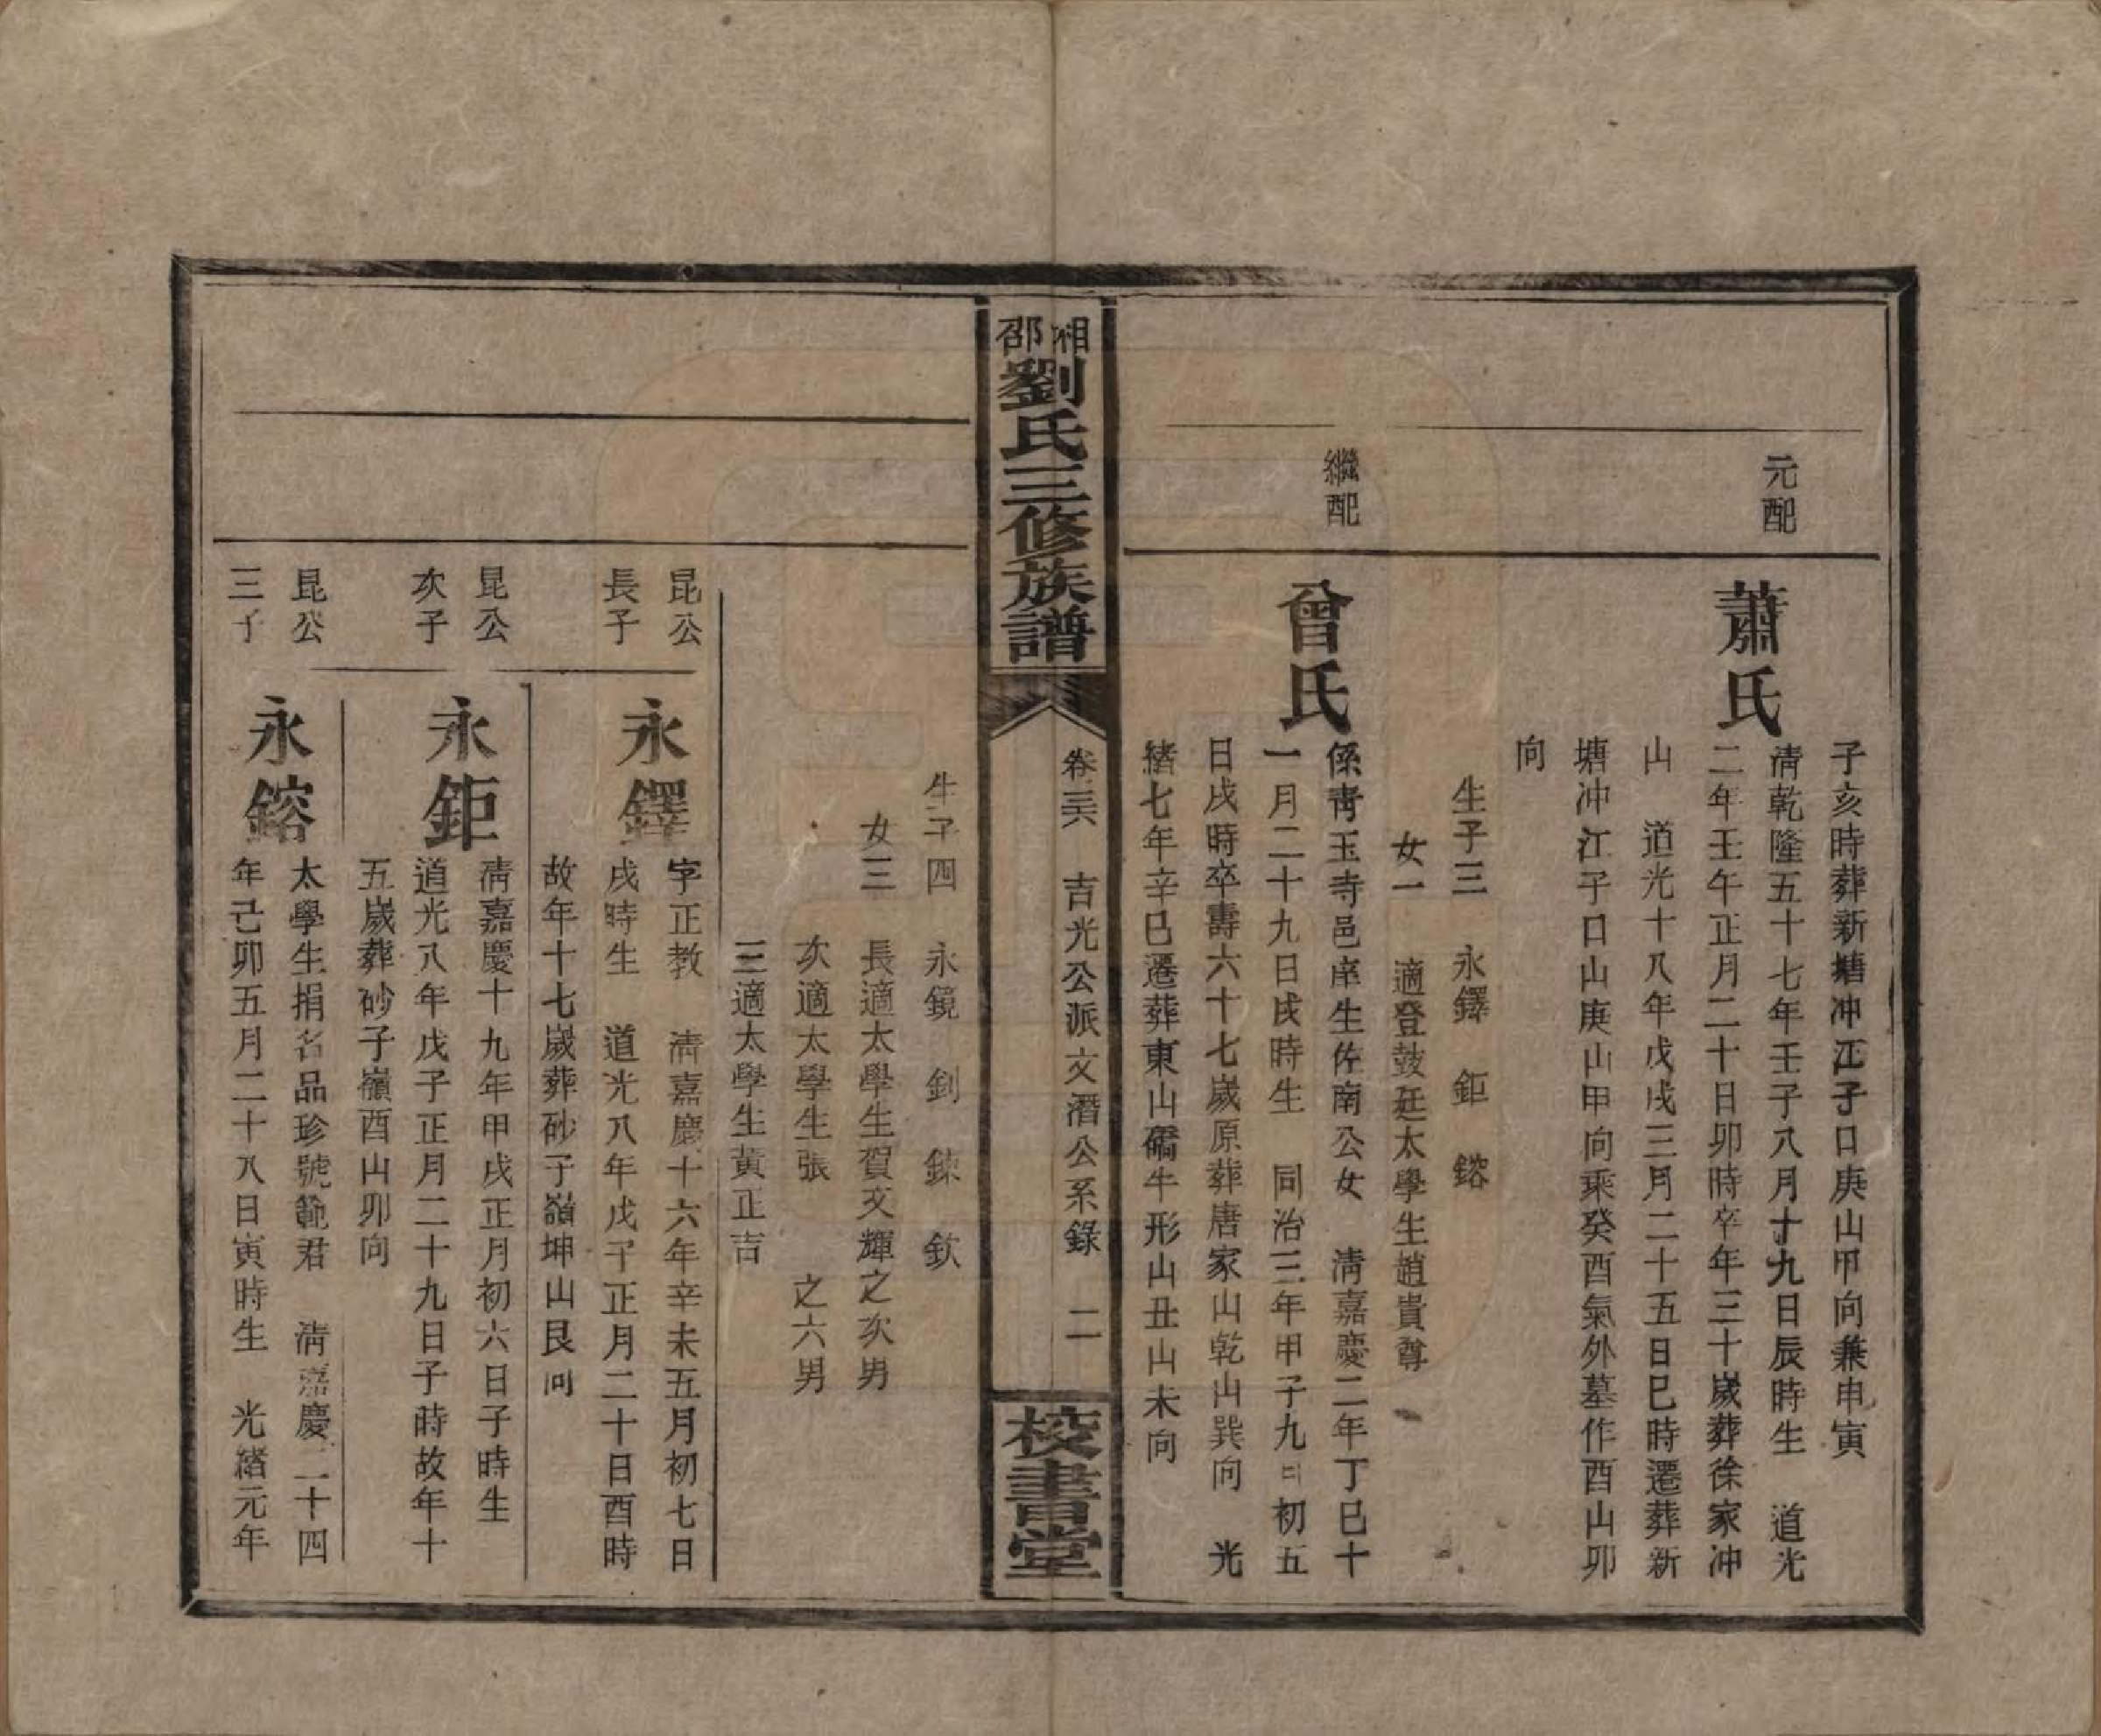 子亥時葬新塘冲江子口庚山甲向兼申寅
元配
蕭氏
清乾隆五十七年壬子八月十九日辰時生　道光
二年壬午正月二十日卯時卒年三十歲葬徐家冲
山　道光十八年戊戌三月二十五日巳時遷葬新
塘冲江子口山庚山甲向乘癸酉氣外墓作酉山卯
向
生子三　永鐸　鉅　鎔
女一　適登鼓廷太學生趙貴尊
繼配
曾氏
係青玉寺邑庠生佐南公女　清嘉慶二年丁巳十
一月二十九日戌時生　同治三年甲子九日初五
日戌時卒壽六十七歲原葬唐家山乾山巽向　光
緒七年辛巳遷葬東山礄牛形山丑山未向
湘邵劉氏三修族譜
卷三六　吉光公派文潛公系錄　二
校書堂
生子四　永鏡　釗　鍊　欽
女三　長適太學生賀文輝之次男
次適太學生張　之六男
三適太學生黃正吉
昆公
長子
永鐸
字正教　清嘉慶十六年辛未五月初七日
戌時生　道光八年戊子正月二十日酉時
故年十七歲葬砂子嶺坤山艮向
昆公
次子
永鉅
清嘉慶十九年甲戌正月初六日子時生
道光八年戊子正月二十九日子時故年十
五歲葬砂子嶺酉山卯向
昆公
三子
永鎔
太學生捐名品珍號範君　清嘉慶二十四
年己卯五月二十八日寅時生　光緒元年